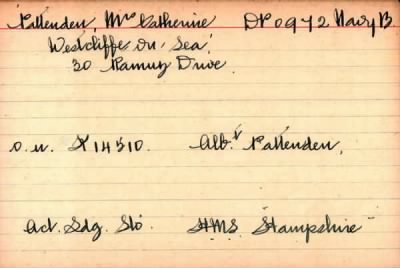 Pattenden, Mrs Katherine DP 0972 Navy B
Westcliffe on Sea
30 Ramuz Drive
o.n. X14510. Albt Pattenden,
Act. Ldg. Sto. HMS Hampshire